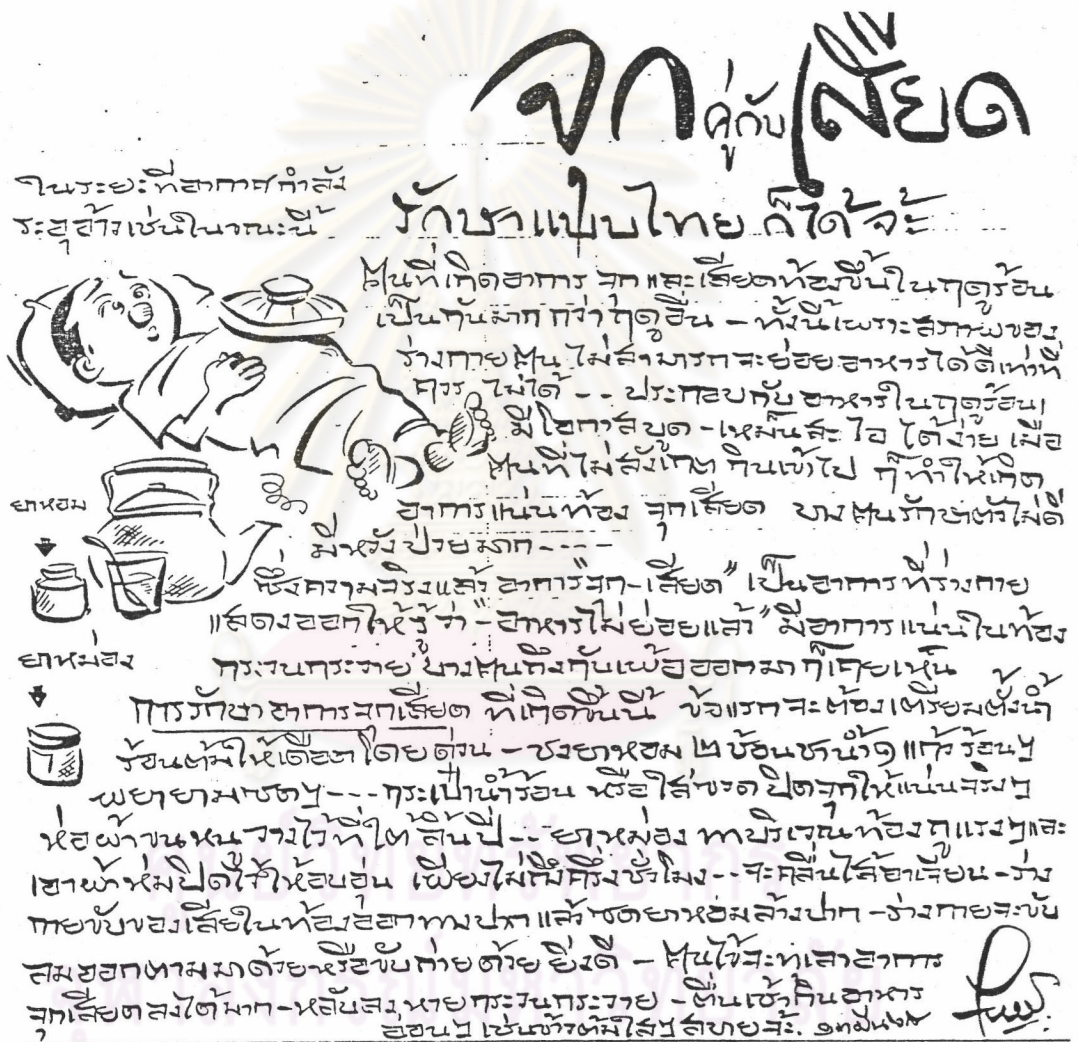 จุก คู่กับ เสียด
ในระยะที่อากาศกำลัง
ระอุอ้าวเช่นในขณะนี้
รักษาแบบไทย ก็ได้จ้ะ
คนที่เกิดอาการ จุกและเสียดท้องขึ้นในฤดูร้อน
เป็นกันมาก กว่าฤดูอื่น - ทั้งนี้เพราะสภาพของ
ร่างกายคน ไม่สามารถจะย่อยอาหารได้ดีเท่าที่
ควร ไม่ได้ -- ประกอบกับอาหารในฤดูร้อน
มีโอกาสบูด - เหม็นสะไอ ได้ง่าย เมื่อ
คนที่ไม่สังเกต กินเข้าไป ก็ทำให้เกิด
อาการแน่นท้อง จุกเสียด บางคนรักษาตัวไม่ดี
มีหวังป่วยมาก ----
ยาหอม
ซึ่งความจริงแล้ว อาการ "จุก-เสียด" เป็นอาการที่ร่างกาย
แสดงออกให้รู้ว่า "-อาหารไม่ย่อยแล้ว" มีอาการแน่นในท้อง
ยาหม่อง
กระวนกระวาย บางคนถึงกับเพ้อออกมาก็เคยเห็น
การรักษาอาการจุกเสียด ที่เกิดขึ้นนี้ ข้อแรกจะต้องเตรียมตั้งน้ำ
ร้อนต้มให้เดือดโดยด่วน - ชงยาหอม ๒ ช้อนชาน้ำ ๑ แก้ว ร้อนๆ
พยายามซดๆ --- กระเป๋าน้ำร้อน หรือใส่ขวดปิดจุกให้แน่นจริงๆ
ห่อผ้าขนหนูวางไว้ที่ใต้ลิ้นปี่ -- ยาหม่อง ทาบริเวณท้องถูแรงๆและ
เอาผ้าห่มปิดไว้ให้อบอุ่น เพียงไม่ถึงครึ่งชั่วโมง -- จะคลื่นไส้อาเจียน - ร่าง
กายขับของเสียในท้องออกทางปาก แล้วซดยาหอมล้างปาก - ร่างกายจะขับ
ลมออกตามมาด้วยหรือขับถ่ายด้วยยิ่งดี - คนไข้จะทุเลาอาการ
จุกเสียดลงได้มาก - หลับลง หายกระวนกระวาย - ตื่นเช้ากินอาหาร
อ่อนๆ เช่นข้าวต้มใสๆ สบายจ้ะ.